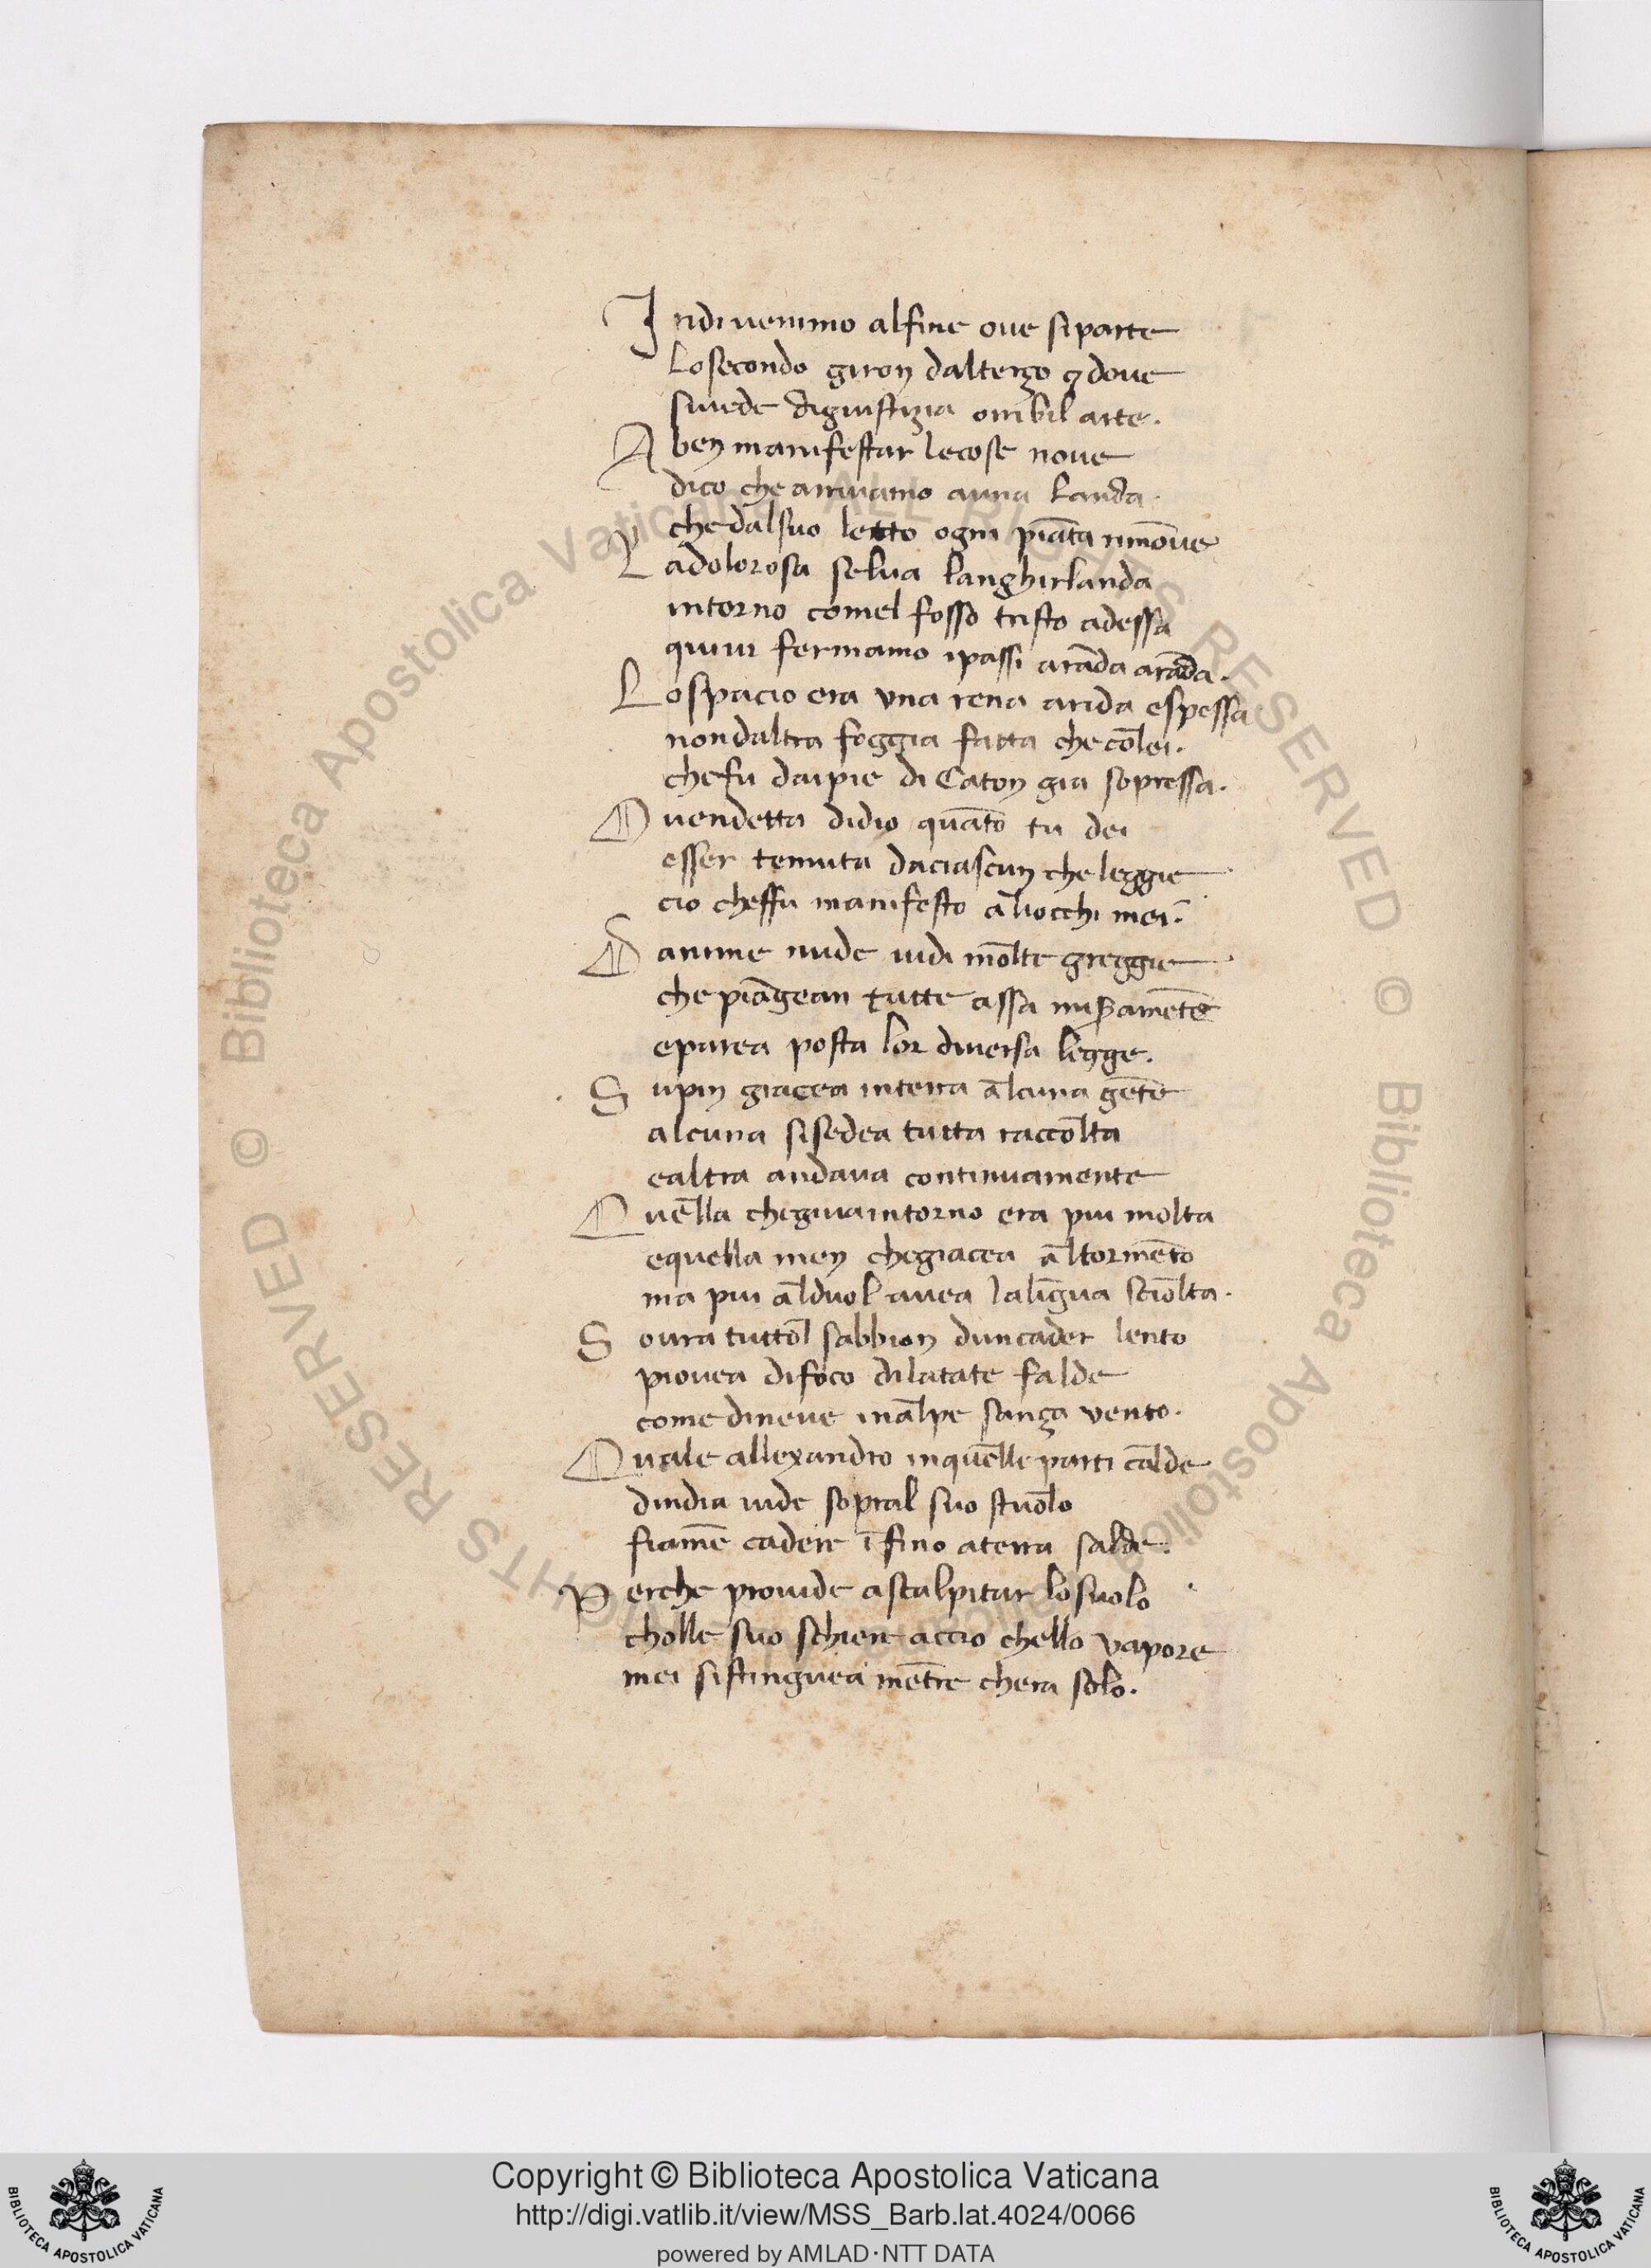 Indi uenimo alfine oue siparte
Losecondo giron dalterço ⁊ doue
siuede digiustizia oribil arte.
A ben manifestar lecose noue
dico che arriuamo auna landa.
che dalsuo letto ogni piāta rimōue
Ladolorosa selua langhirlanda
intorno comel fosso tristo adessa
quiui fermamo ipassi arāda arāda.
Lospacio era vna rena arida espessa
nondaltra foggia fatta che cōlei.
chefu daipie di Caton gia sopressa.
O uendetta didio quāto tu dei
esser temuta daciascun che leggie
cio cheffu manifesto alliocchi mei.
D anime nude uidi mōlte greggie
che piāgean tutte assa miseramēte
eparea posta lor diuersa legge.
Supin giacea interra alcuna gēte
alcuna sisedea tutta raccōlta
ealtra andaua continuamente
Quella chegiuaintorno era piu molta
equella men chegiacea altormēto
ma piu alduol auea lalīgua sciōlta.
Soura tuttol sabbion duncader lento
piouea difoco dilatate falde
come dineue inalpe sança vento.
Quale allexandro inquelle parti calde
dindia uide sopral suo stuolo
fiamē cadere ī fino aterra salde.
Perche prouide ascalpitar losuolo
cholle suo schiere accio chello vapore
mei sistinguea mētre chera solo.
© Biblioteca Apostolica Vaticana ALL RIGHTS RESERVED © Biblioteca Apostolica Vaticana ALL RIGHTS RESERVED
Copyright © Biblioteca Apostolica Vaticana
http://digi.vatlib.it/view/MSS_Barb.lat.4024/0066
powered by AMLAD·NTT DATA
BIBLIOTECA APOSTOLICA VATICANA
BIBLIOTECA APOSTOLICA VATICANA